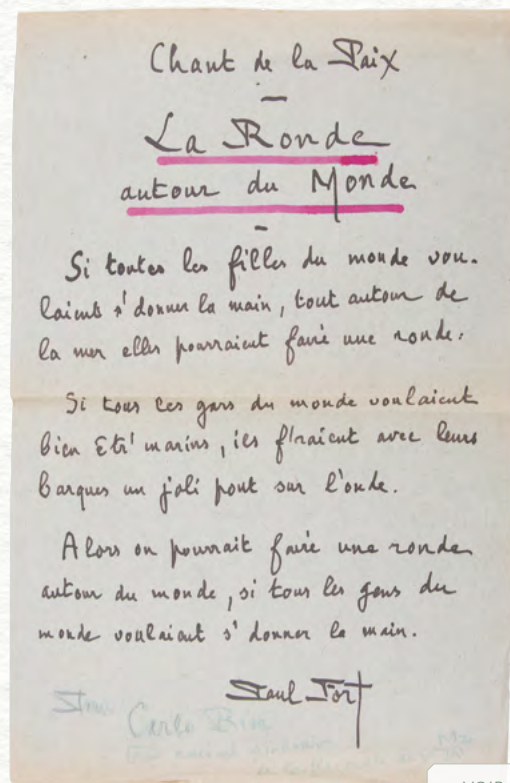 Chant de la Paix
La Ronde
autour du Monde
Si toutes les filles du monde vou-
laient s'donner la main, tout autour de
la mer elles pourraient faire une ronde.
Si tous les gars du monde voulaient
bien êtr' marins, ils f'raient avec leurs
barques un joli pont sur l'onde.
Alors on pourrait faire une ronde
autour du monde, si tous les gens du
monde voulaient s'donner la main.
Paul Fort
Carlo